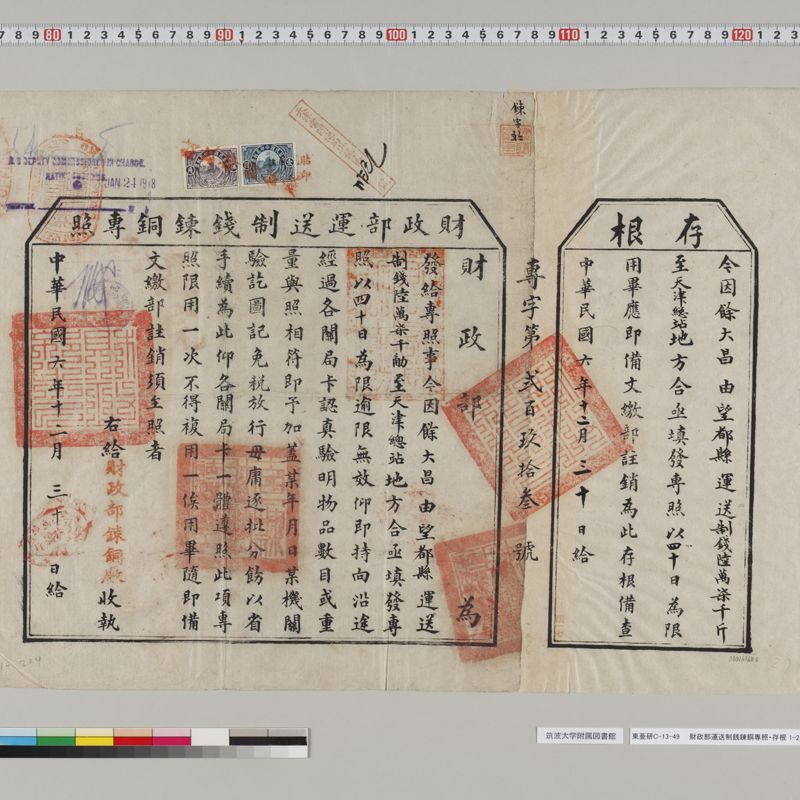 存根
令因餘大昌由望都縣運送制錢陸萬柒千斤
至天津總站地方合亟填發專照以四十日為限
用畢應即備文繳部註銷為此存根備查
中華民國六年十二月三十日給
專字第貳百玖拾叁號
鍊字號
財政部運送制錢鍊銅專照
財政部為
發給專照事今因餘大昌由望都縣運送
制錢陸萬柒千觔至天津總站地方合亟填發專
照以四十日為限逾限無效仰即持向沿途
經過各關局卡認真驗明物品數目或重
量與照相符即予加蓋某年月日某機關
驗訖圖記免稅放行毋庸逐批分飭以省
手續為此仰各關局卡一體遵照此項專
照限用一次不得複用一俟用畢隨即備
文繳部註銷須至照者
右給財政部鍊銅廠收執
中華民國六年十二月三十日給
DEPUTY COMMISSIONER IN CHARGE,
JAN 24 1918
筑波大学附属図書館
東亜研C-13-49 財政部運送制銭錬銅専照・存根 1-2